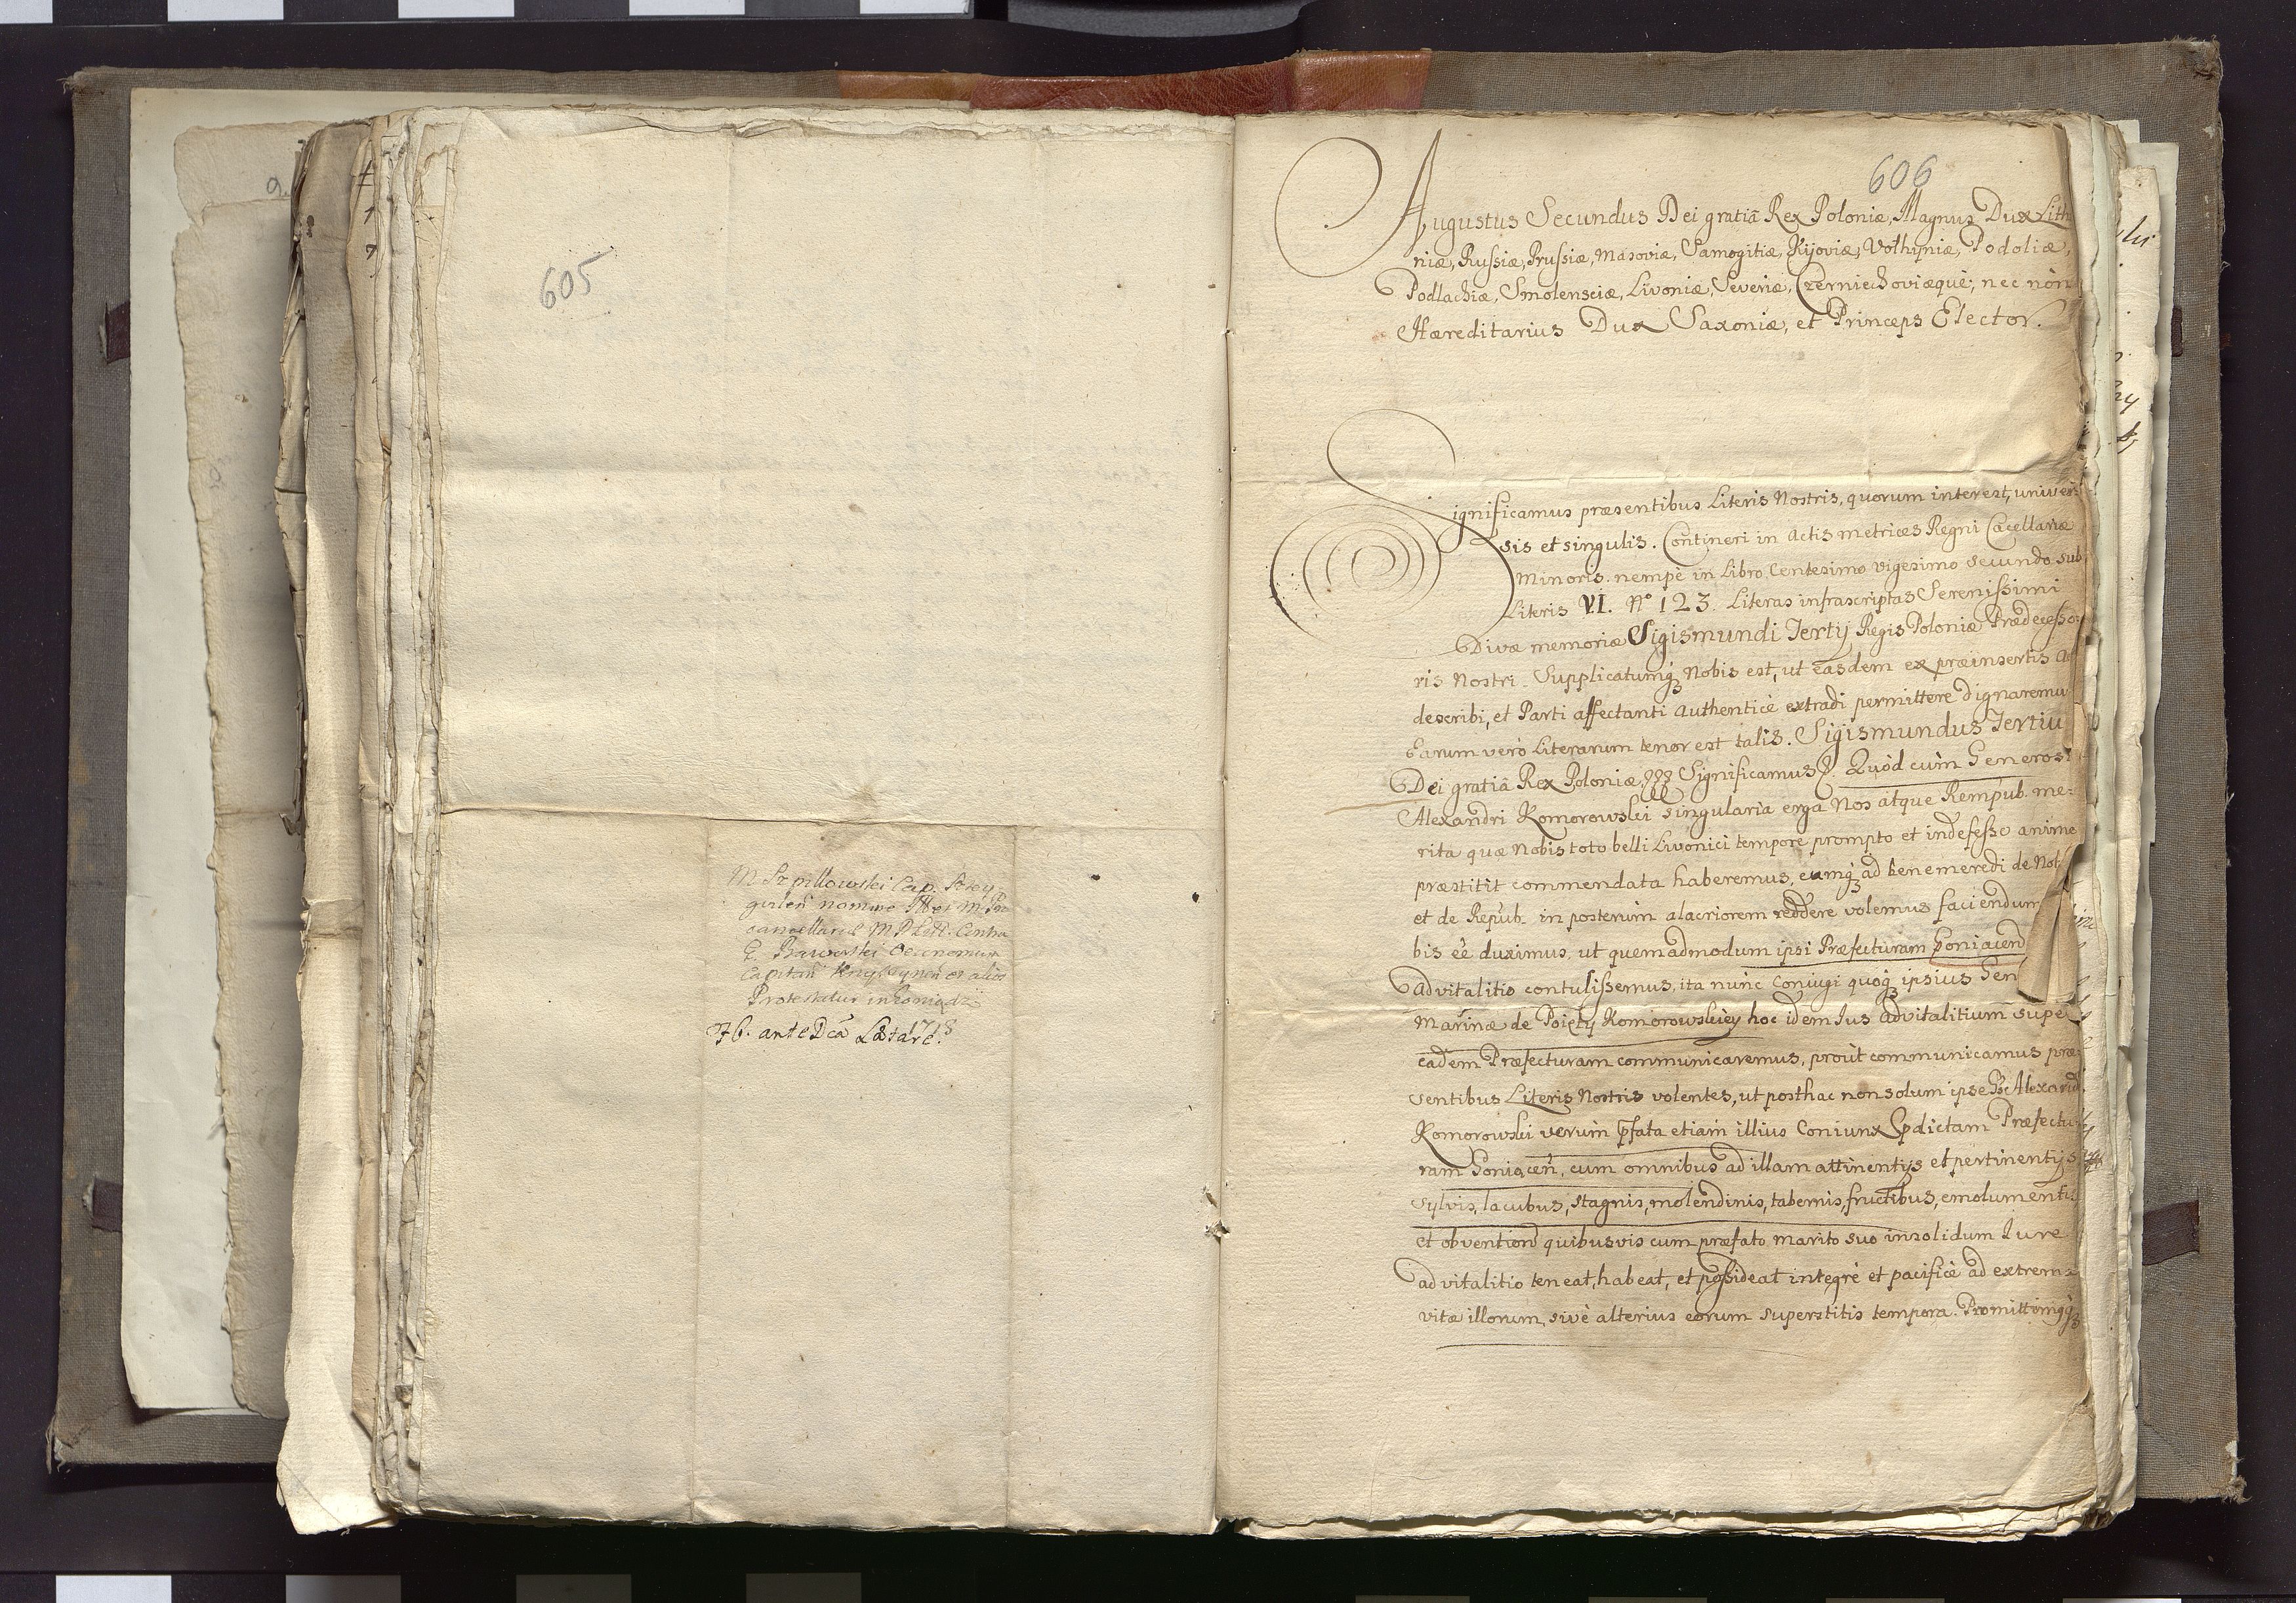 605
M Szpillowski Cap.
nomine
cancellarii M D Litt. Contra
G. Oeconomum
Capitan et alios
Protestatur in Goniądz
fb. ante Dcã Lætare 1718
606
Augustus Secundus Dei gratiâ Rex Poloniæ, Magnus Dux Lith
niæ, Russiæ, Prussiæ, Masoviæ, Samogitiæ, Kijoviæ, Volhyniæ, Podoliæ,
Podlachiæ, Smolensciæ, Livoniæ, Severiæ, Czerniechoviæque, nec nòn
Hæreditarius Dux Saxoniæ, et Princeps Elector.
Significamus præsentibus Literis Nostris, quorum interest, univer
sis et singulis. Contineri in Actis metrices Regni Cacellariæ
Minoris nempè in Libro Centesimo vigesimo secundo sub
Literis VI. No 123. Literas infrascriptas Serenissimi
Divæ memoriæ Sigismundi Tertij Regis Poloniæ Prædecesso
ris Nostri. Supplicatumq3 Nobis est, ut easdem ex præinsertis
describi, et Parti affectanti authenticè extradi permittere dignaremu
Earum verò Literarum tenor est talis. Sigismundus Tertiu
Dei gratiâ Rex Poloniæ Significamus Quòd cùm Generosi
Alexandri Komorowski singularia erga Nos atque Rempub. me-
rita quæ Nobis toto belli Livonici tempore prompto et indefesso animo
præstitit commendata haberemus, eumq3 ad bene meredi de Nob
et de Repub. in posterùm alacriorem reddere volemus faciendum
bis ẽe duximus, ut quemadmodum ipsi Præfecturam Goniącen
advitalitio contulissemus, ita nunc Coniugi quoq3 ipsius Gen
Marinæ de Komorowskiey hoc idem Ius advitalitium supe
eadem Præfecturam communicaremus, prout communicamus præ
sentibus Literis Nostris volentes, ut posthac non solum ipse Gsc Alexand
Komorowski verùm pfata etiam illius Coniunx pdictam Præfectu
ram Goniącen, cum omnibus ad illam attinentijs et pertinentijs
sylvis, lacubus, stagnis, molendinis, tabernis, fructibus, emolumenti
et obvention quibusvis cum præfato marito suo insolidum Iure
advitalitio teneat, habeat, et possideat integrè et pacificè ad extrema
vitæ illorum, sivè alterius eorum superstitis tempora. Promittimq3